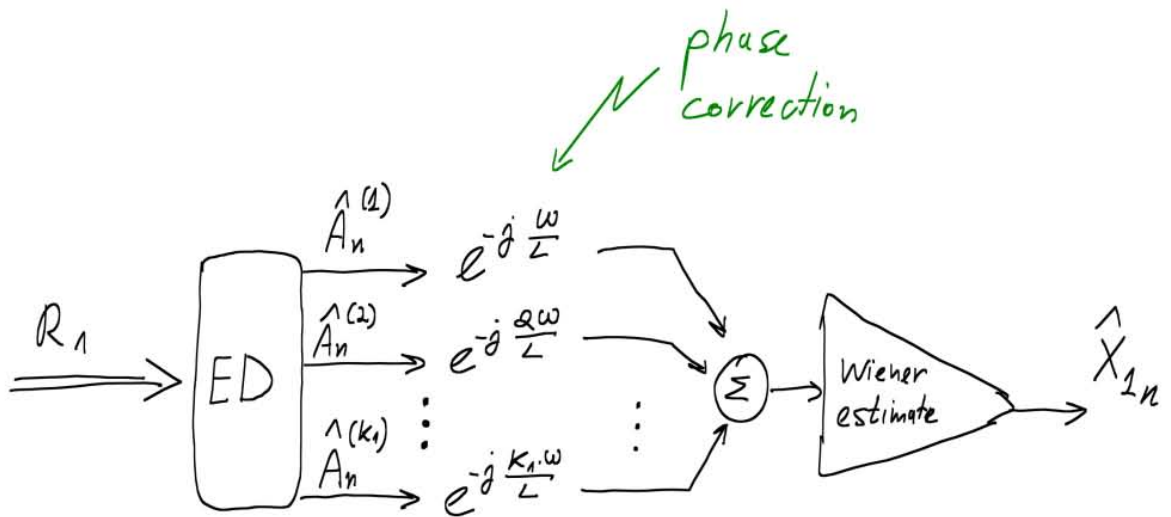 phase
correction
R₁
ED
Â_n^(1)
e^{-j ω/L}
Â_n^(2)
e^{-j 2ω/L}
⋮
⋮
Â_n^(K₁)
e^{-j K₁·ω/L}
Σ
Wiener
estimate
X̂_{1n}